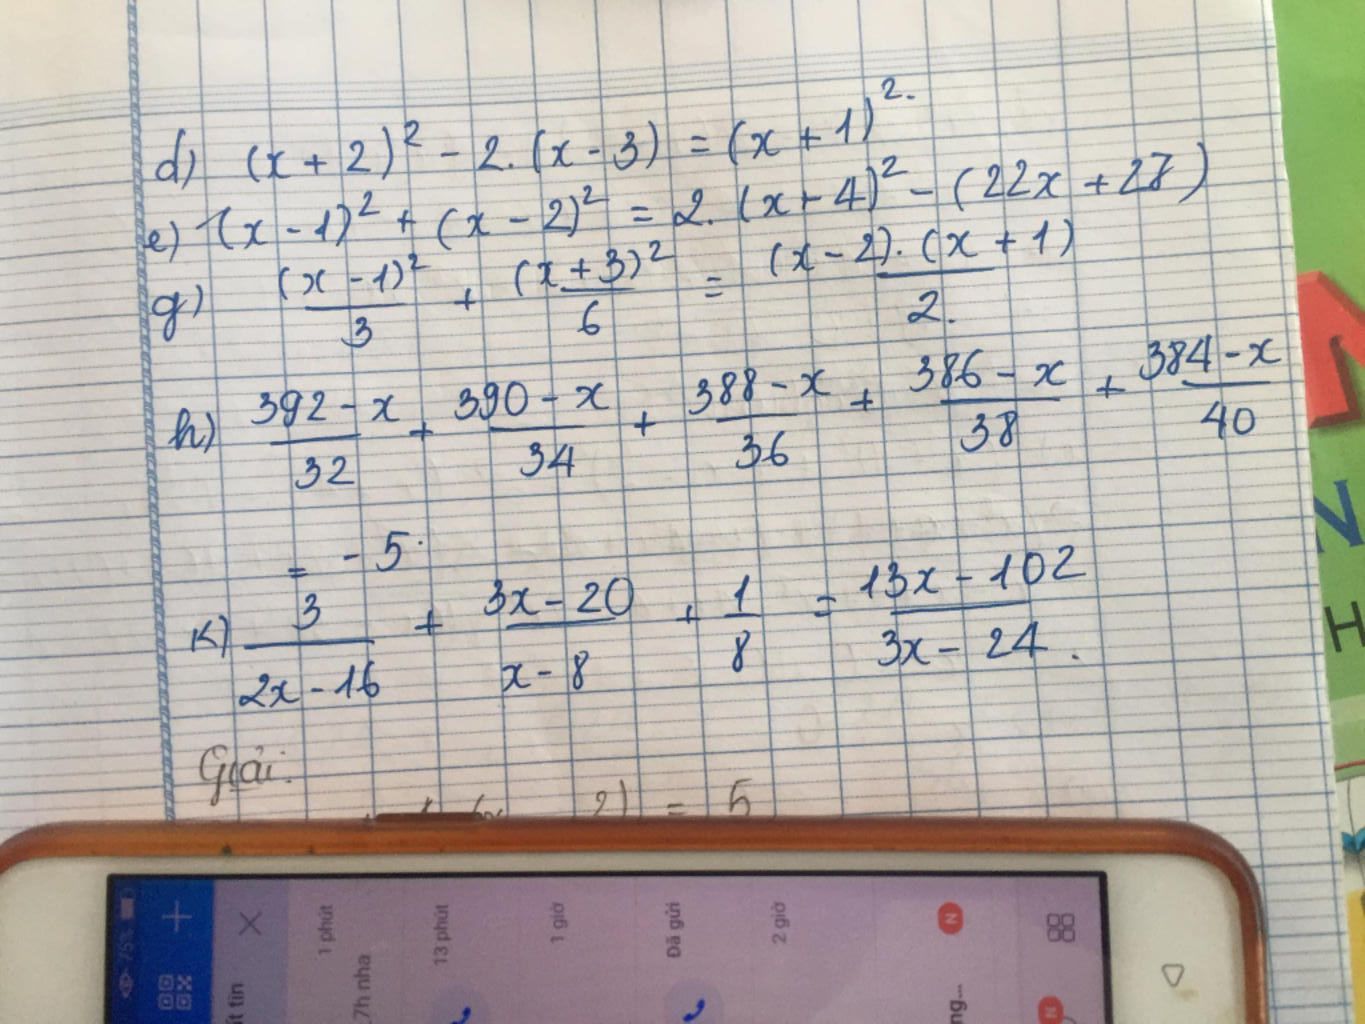 d) (x + 2)² - 2. (x - 3) = (x + 1)².
e) (x - 1)² + (x - 2)² = 2. (x + 4)² - (22x + 27)
g) (x - 1)²/3 + (x + 3)²/6 = (x - 2). (x + 1)/2.
h) 392 - x/32 + 390 - x/34 + 388 - x/36 + 386 - x/38 + 384 - x/40
= - 5.
K) 3/2x - 16 + 3x - 20/x - 8 + 1/8 = 13x - 102/3x - 24.
Giải.
2) = 5
75%
1 phút
7h nha
13 phút
1 giờ
Đã gửi
2 giờ
N
ng...
N
N
H